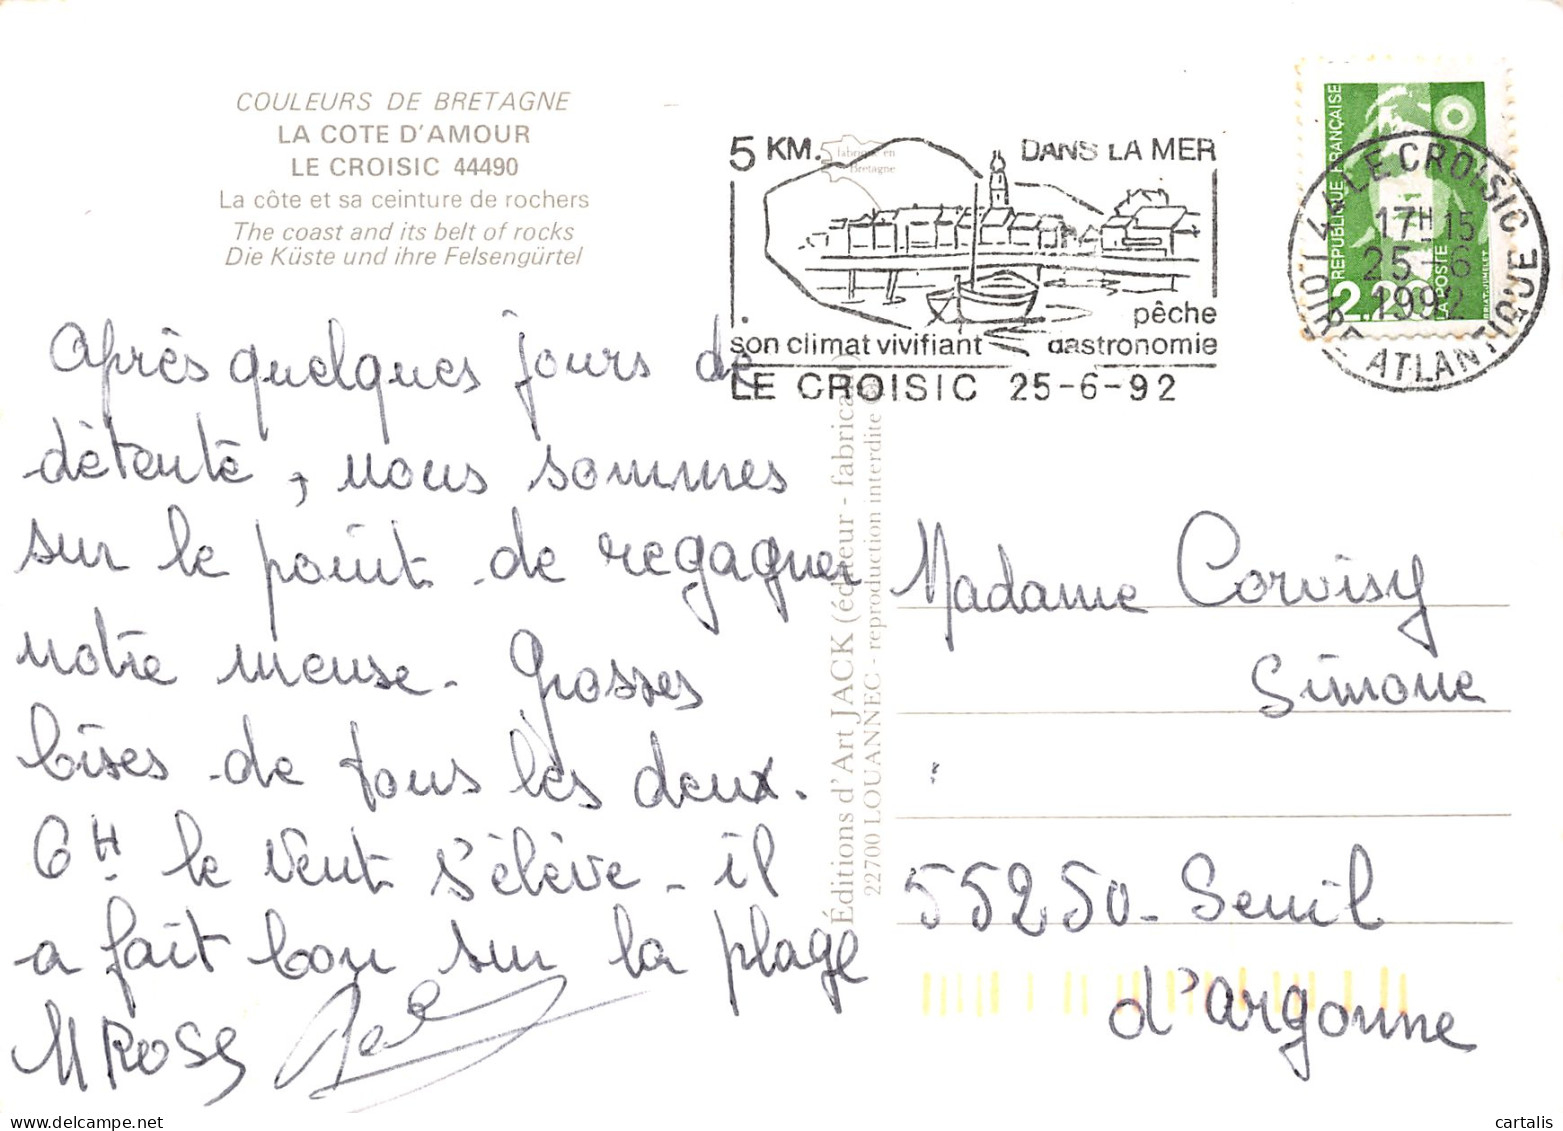 COULEURS DE BRETAGNE
LA COTE D'AMOUR
LE CROISIC 44490
La côte et sa ceinture de rochers
The coast and its belt of rocks
Die Küste und ihre Felsengürtel
Après quelques jours de
détente, nous sommes
sur le point de regagner
notre meuse. Grosses
bises de tous les deux.
6H. le vent s'élève - il
a fait bon sur la plage
M ROSE
fabriqué en
Bretagne
5 KM. DANS LA MER
pêche
son climat vivifiant gastronomie
LE CROISIC 25-6-92
REPUBLIQUE FRANÇAISE
LA POSTE
2.20
44 LE CROISIC
17H15
25-6
1992
LOIRE ATLANTIQUE
Éditions d'Art JACK (éditeur - fabrica
22700 LOUANNEC - reproduction interdite
Madame Corvisy
Simone
55250 - Seuil
d'argonne
cartalis